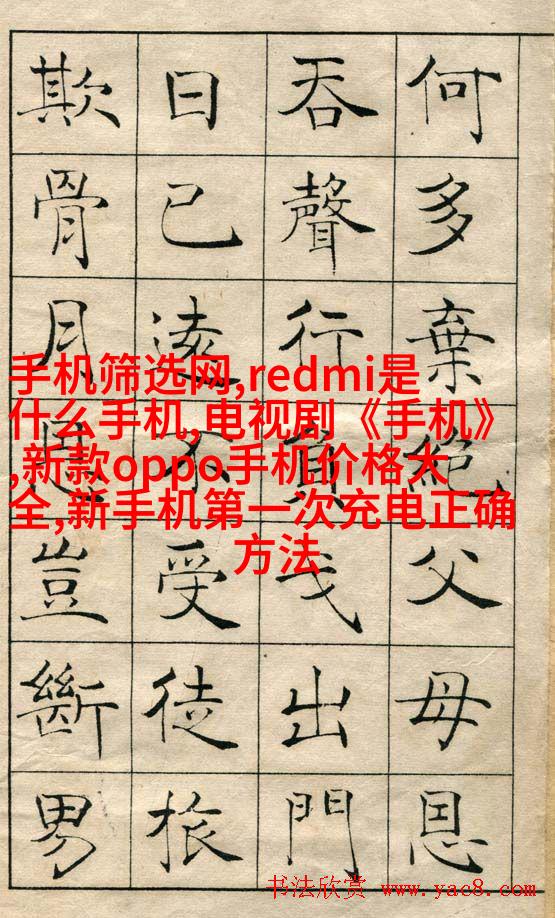 何多棄絕父母恩
吞聲行負戈出門
日已遠不受徒旅
欺骨月恩豈斷男
手机筛选网,redmi是
什么手机,电视剧《手机》
,新款oppo手机价格大
全,新手机第一次充电正确
方法
书法欣赏 www.yac8.com